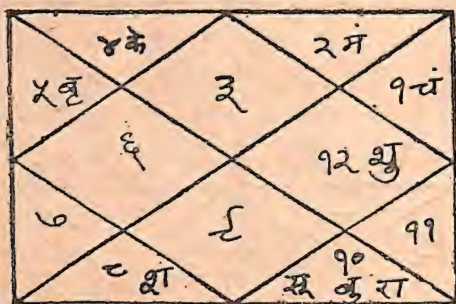 ४ के
२ मं
५ बृ
३
१ चं
६
१२ शु
७
९
११
८ श
१०
सू बु रा